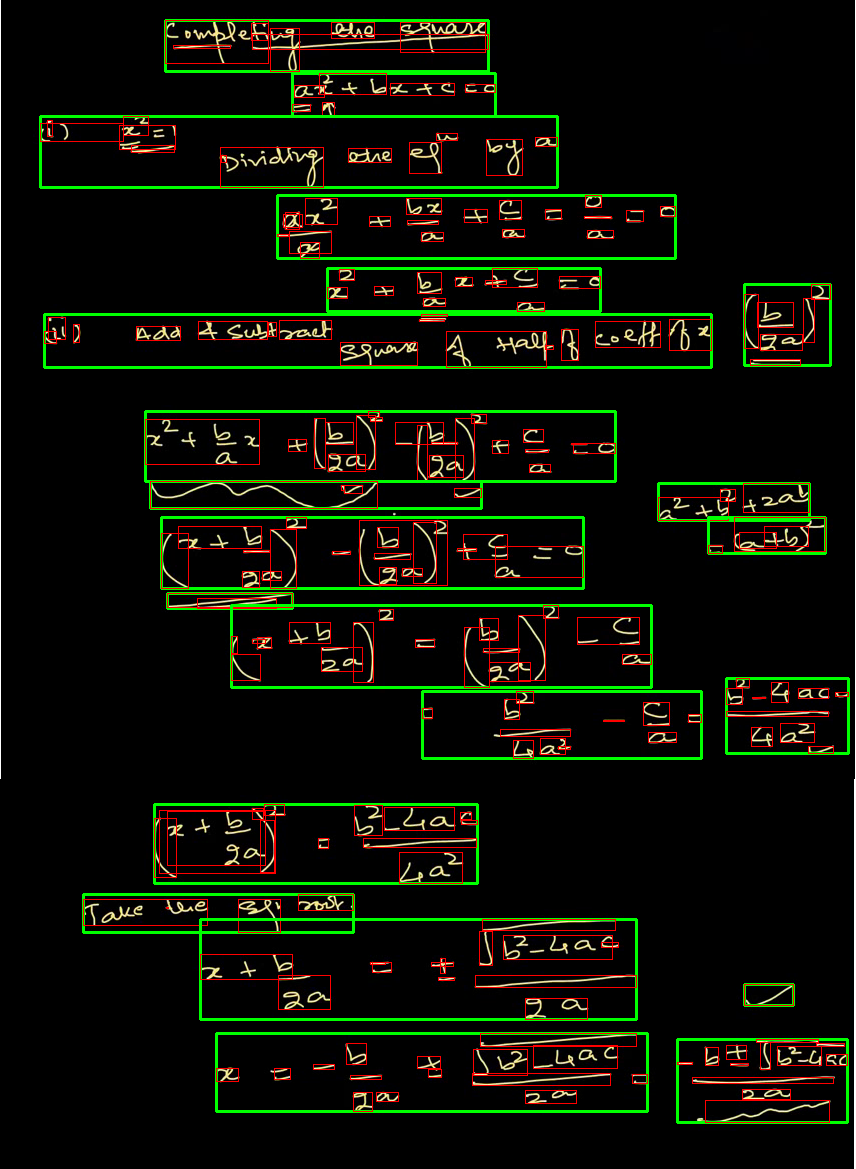 Completing the square
ax² + bx + c = 0
= ↑
(i) x² =
Dividing the eqⁿ by a
ax²/a + bx/a + c/a = 0/a = 0
x² + b/a x + c/a = 0
(ii) Add & Subtract square of Half of coeff of x (b/2a)²
x² + b/a x + (b/2a)² - (b/2a)² + c/a = 0
a² + b² + 2ab
= (a+b)²
(x + b/2a)² - (b/2a)² + c/a = 0
(x + b/2a)² = (b/2a)² - c/a
= b²/4a² - c/a = (b² - 4ac)/4a²
(x + b/2a)² = (b² - 4ac)/4a²
Take the sq root.
x + b/2a = ± √(b² - 4ac)/2a
x = - b/2a ± √(b² - 4ac)/2a = (- b ± √(b² - 4ac))/2a